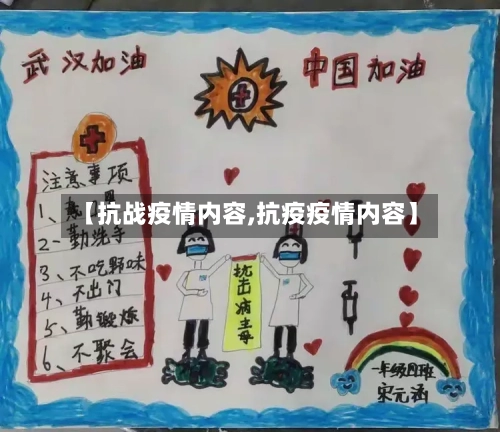 武汉加油
中国加油
注意事项
【抗战疫情内容,抗疫疫情内容】
1、
2、勤洗手
3、不吃野味
4、不出门
5、勤锻炼
6、不聚会
抗击病毒
一年级四班
宋元涵